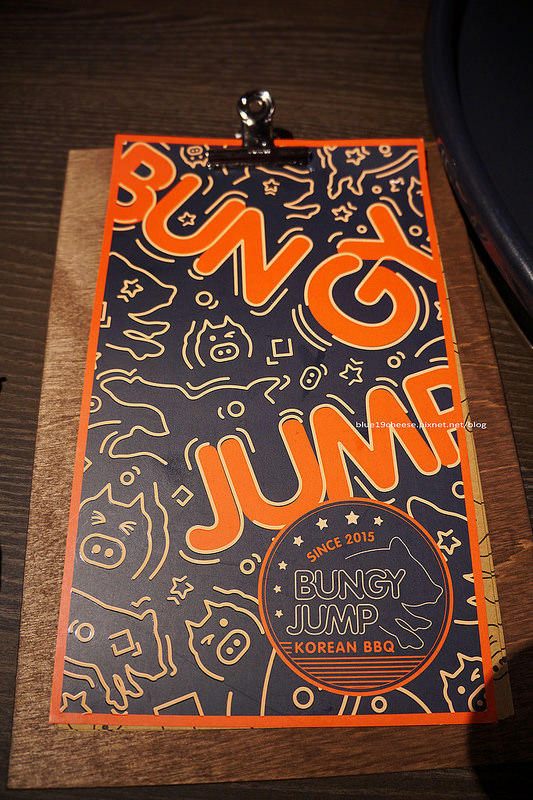 BUNGY
JUMP
blue19cheese.pixnet.net/blog
SINCE 2015
BUNGY
JUMP
KOREAN BBQ